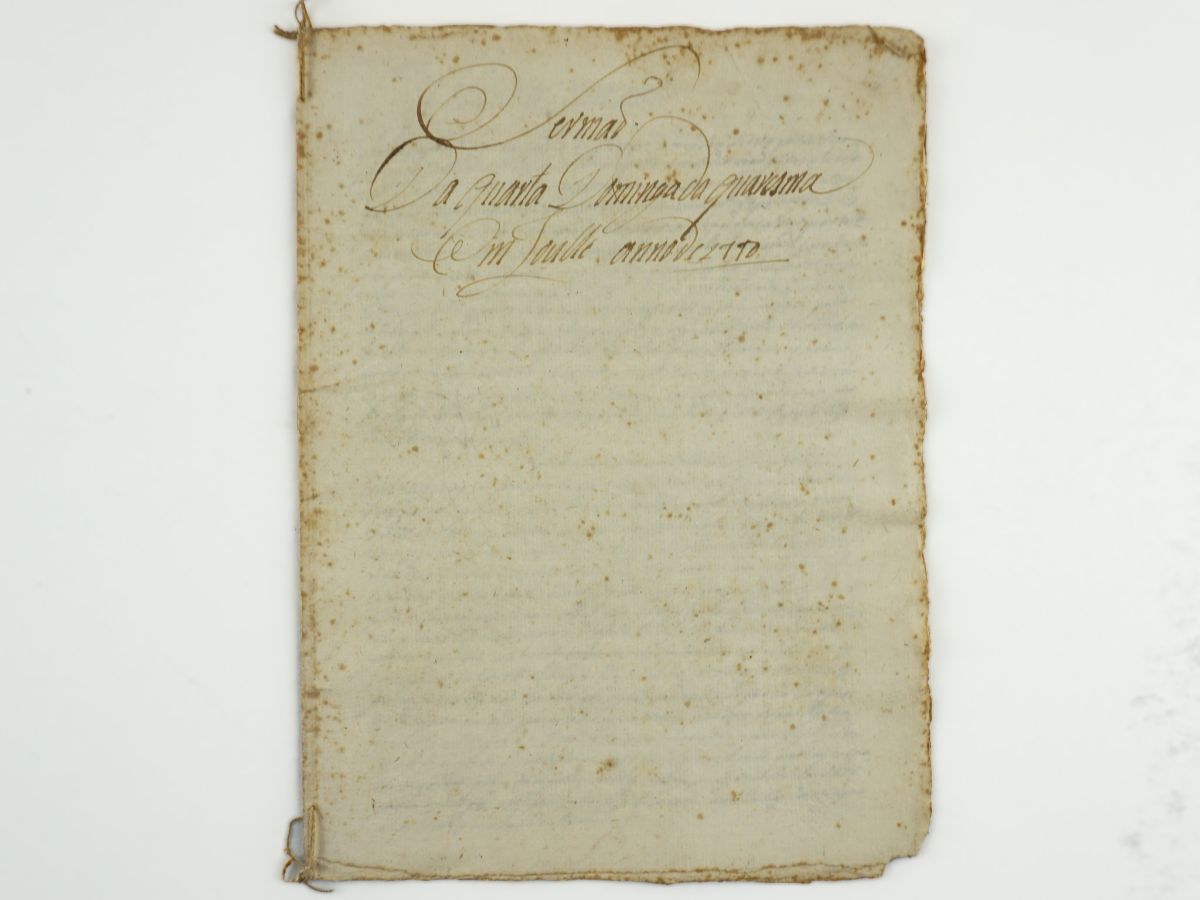 Sermaõ
Da Quarta Dominga da quaresma
Em Loulle anno de 1770.